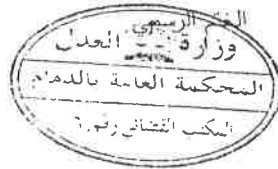 الختم الرسمي
وزارة العدل
المحكمة العامة بالدمام
المكتب القضائي رقم ٦